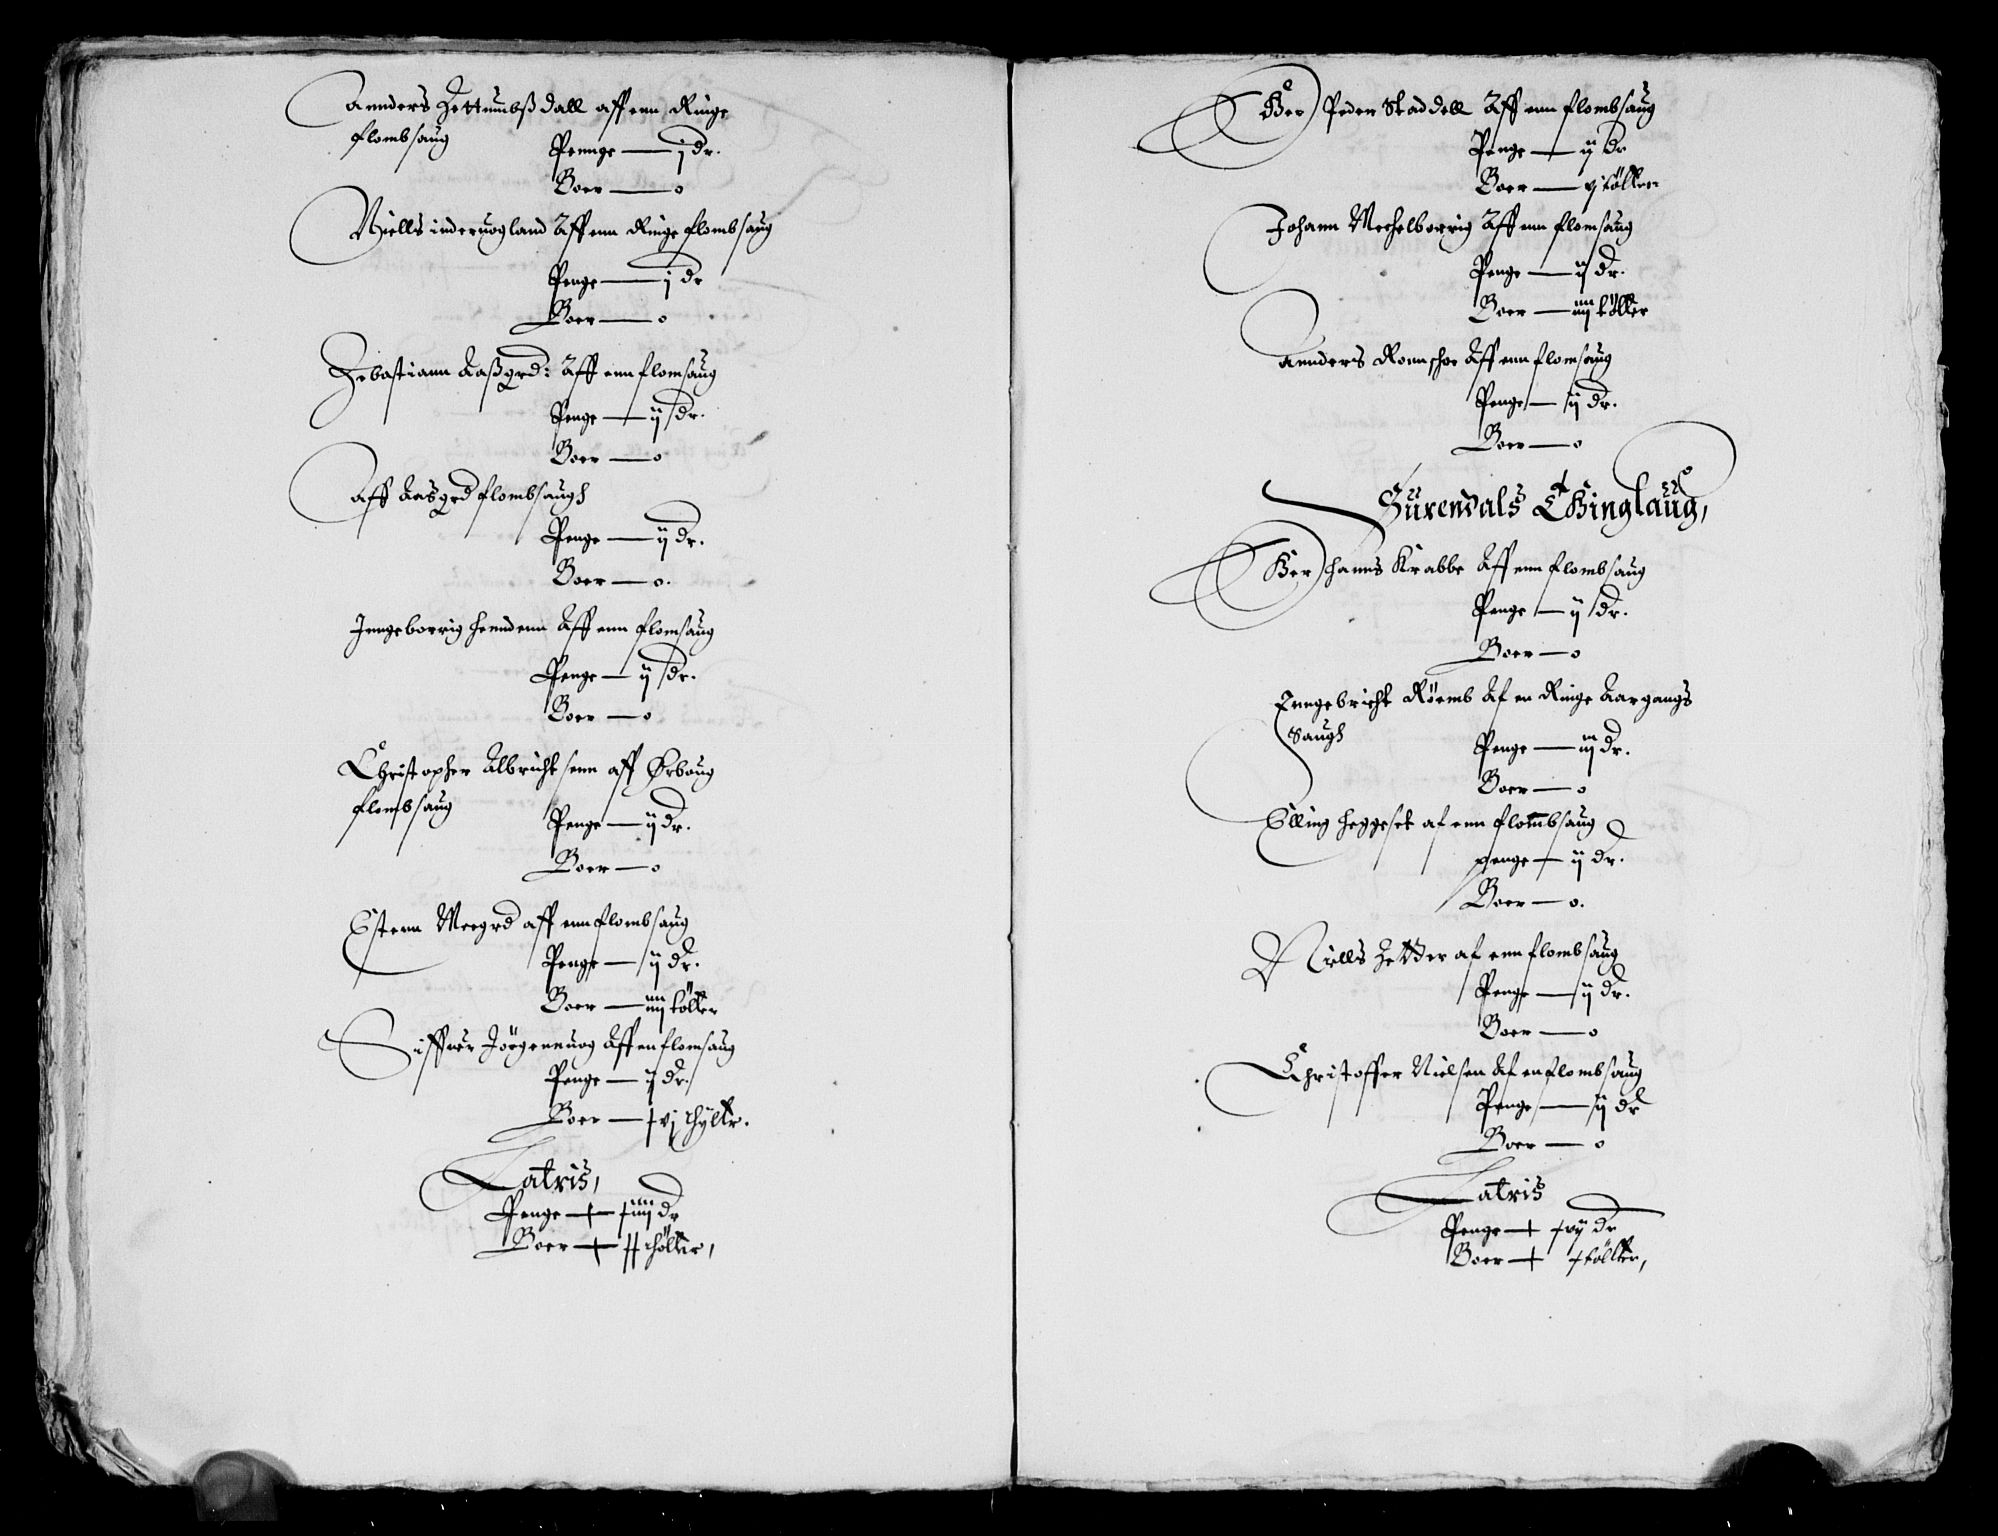 Annders Zettembßdall aff enn Ringe
flombsaug
Pennge — j dr.
Boer — 0
Niells inderuogland Aff enn Ringe flombsaug
Penge — j dr
Boer — 0
Zebastiann Aaßgrd: Aff enn flomsaug
Penge — ij dr.
Boer — 0
Aff Aasgrd flombsaugh
Penge — ij dr.
Boer — 0.
Inngeborrig henndenn Aff enn flomsaug
Penge — ij dr.
Boer — 0
Christopher Albrichtsenn aff Ørboug
flombsaug
Penge — ij dr.
Boer — 0
Estenn Meegrd aff enn flombsaug
Penge — ij dr.
Boer — iiij tølter
Siffuer Jörgenuog Aff en flomsaug
Penge — ij dr.
Boer — xvj thyltr.
Latris,
Penge — xiiij dr
Boer — xx thölter,
Her Peder Staddell Aff enn flombsaug
Penge — ij dr
Boer — vj tölter
Johann Mechelborrig Aff enn flomsaug
Penge — ij dr.
Boer — iiij tölter
Annders Ronnshoe Aff enn flomsaug
Penge — ij dr.
Boer — 0
Surendals Thinglaug,
Her hanns Krabbe Aff enn flombsaug
Penge — ij dr.
Boer — 0
Inngebricht Röemb Af en Ringe Aargangs
Saugh
Penge — iij dr.
Boer — 0
Elling heggeset af enn flombsaug
penge — ij dr.
Boer — 0.
Niells Zetter af enn flombsaug
Penge — ij dr.
Boer — 0
Christoffer Nielsen Af en flombsaug
Penge — ij dr
Boer — 0
Latris
Penge — xvij dr
Boer — x töllter,